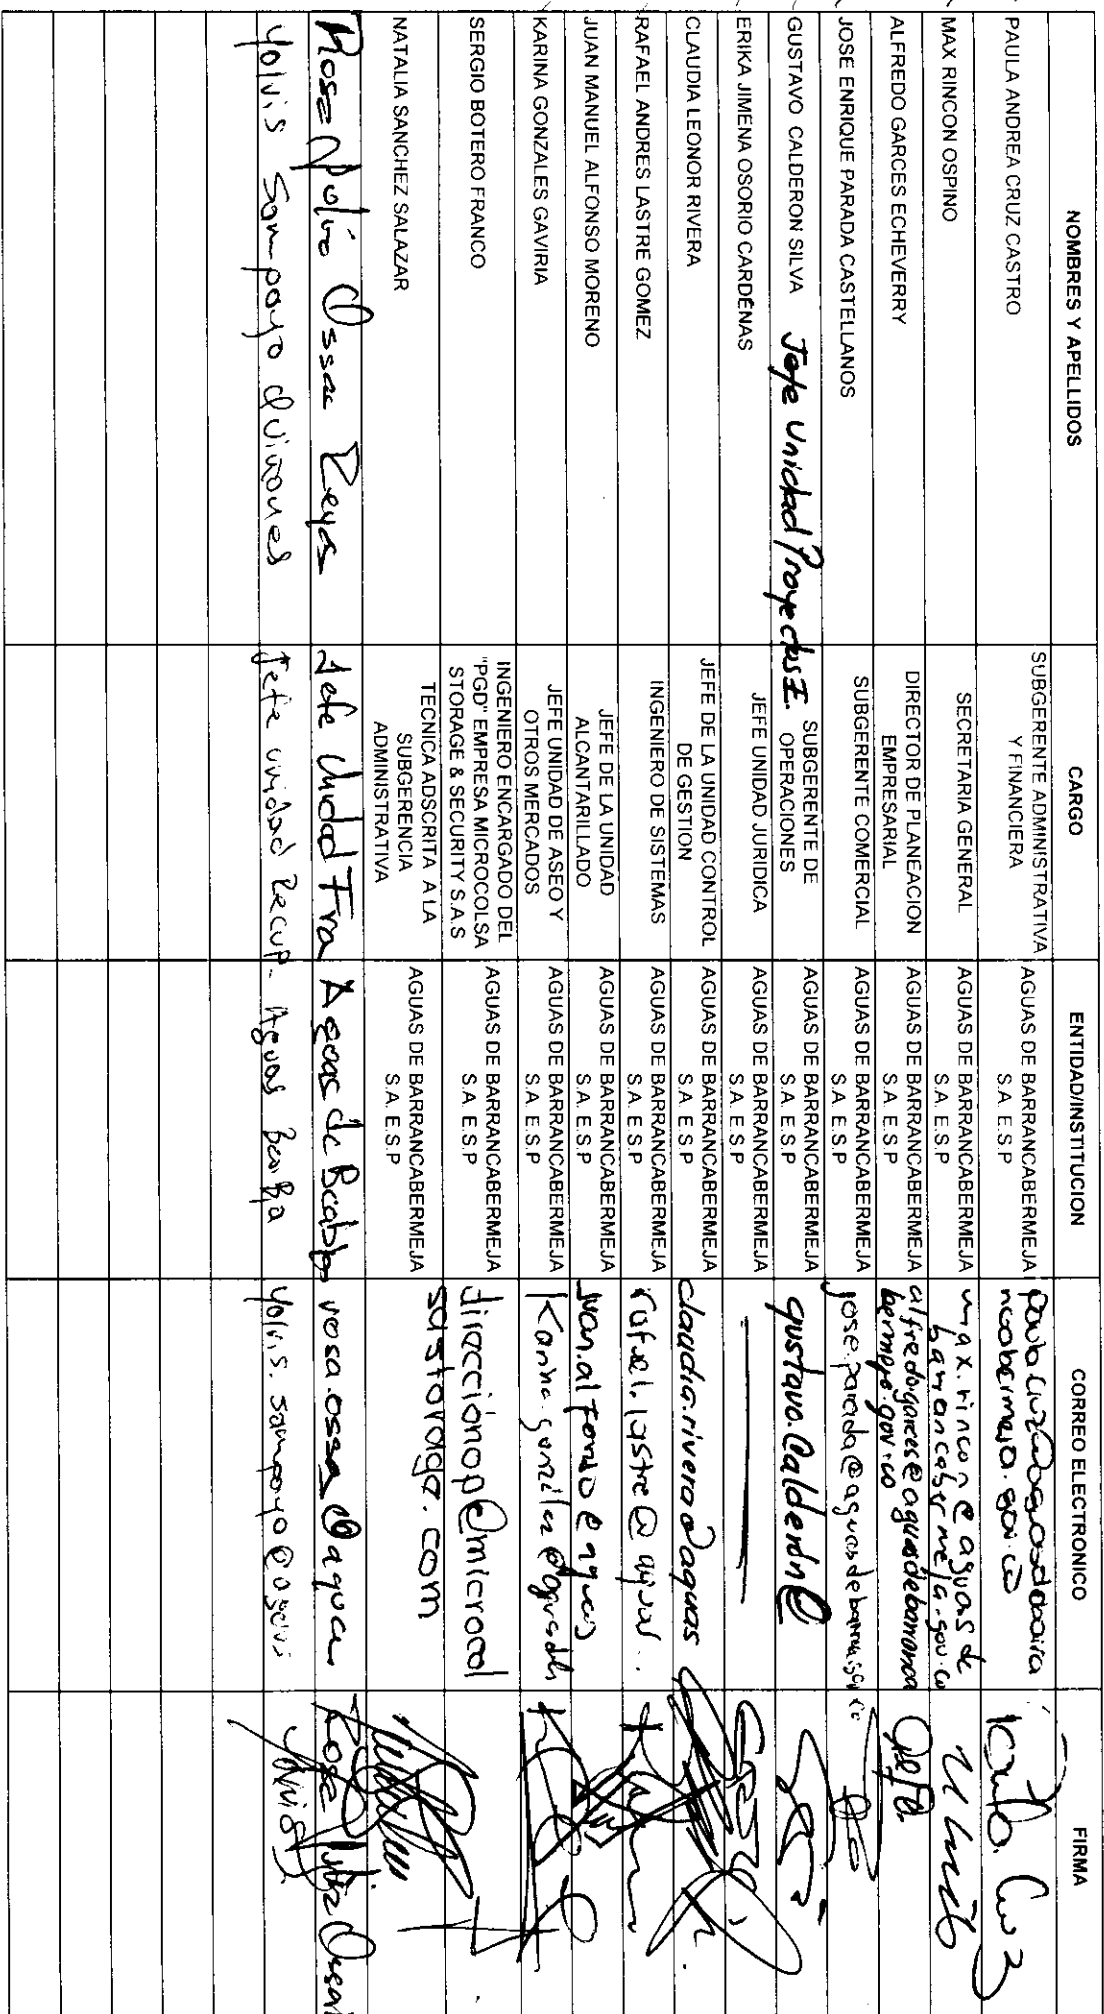 NOMBRES Y APELLIDOS CARGO ENTIDAD/INSTITUCION CORREO ELECTRONICO FIRMA
PAULA ANDREA CRUZ CASTRO SUBGERENTE ADMINISTRATIVA Y FINANCIERA AGUAS DE BARRANCABERMEJA S.A. E.S.P
MAX RINCON OSPINO SECRETARIA GENERAL AGUAS DE BARRANCABERMEJA S.A. E.S.P max.rincon@aguasde barrancabermeja.gov.co
ALFREDO GARCES ECHEVERRY DIRECTOR DE PLANEACION EMPRESARIAL AGUAS DE BARRANCABERMEJA S.A. E.S.P alfredo.garces@aguasdebarranca bermeja.gov.co
JOSE ENRIQUE PARADA CASTELLANOS SUBGERENTE COMERCIAL AGUAS DE BARRANCABERMEJA S.A. E.S.P jose.parada@aguasdebarranca.gov.co
GUSTAVO CALDERON SILVA Jefe Unidad Proyectos I. SUBGERENTE DE OPERACIONES AGUAS DE BARRANCABERMEJA S.A. E.S.P gustavo.Calderón@
ERIKA JIMENA OSORIO CARDENAS JEFE UNIDAD JURIDICA AGUAS DE BARRANCABERMEJA S.A. E.S.P
CLAUDIA LEONOR RIVERA JEFE DE LA UNIDAD CONTROL DE GESTION AGUAS DE BARRANCABERMEJA S.A. E.S.P claudia.rivera@aguas
RAFAEL ANDRES LASTRE GOMEZ INGENIERO DE SISTEMAS AGUAS DE BARRANCABERMEJA S.A. E.S.P rafael.lastre@aguas..
JUAN MANUEL ALFONSO MORENO JEFE DE LA UNIDAD ALCANTARILLADO AGUAS DE BARRANCABERMEJA S.A. E.S.P juan.alfonso@aguas
KARINA GONZALES GAVIRIA JEFE UNIDAD DE ASEO Y OTROS MERCADOS AGUAS DE BARRANCABERMEJA S.A. E.S.P
SERGIO BOTERO FRANCO INGENIERO ENCARGADO DEL "PGD" EMPRESA MICROCOLSA STORAGE & SECURITY S.A.S AGUAS DE BARRANCABERMEJA S.A. E.S.P direccionop@microcol sastorage.com
NATALIA SANCHEZ SALAZAR TECNICA ADSCRITA A LA SUBGERENCIA ADMINISTRATIVA AGUAS DE BARRANCABERMEJA S.A. E.S.P
Rosa Ossa Reyes Jefe Unidad Fra Aguas de rosa.ossa@aguas Rosa Ossa
Yolvis Sampayo Quiñones Jefe unidad Recup. Aguas yolvis.sampayo@aguas Yolvis